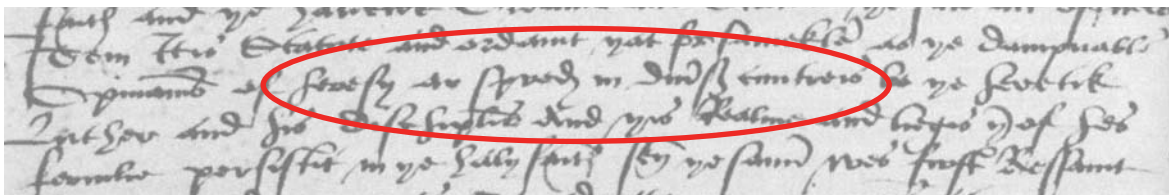 faith and ye
Item It is Statute and ordanit yat forsamekle as ye dampnable
Opinions of heresy ar spred in diuerss cuntreis be ye heretik
Luther and his discipillis And yis Realme and liegis yof hes
fermlie persistit in ye haly faith sen ye samin wes first Ressauit